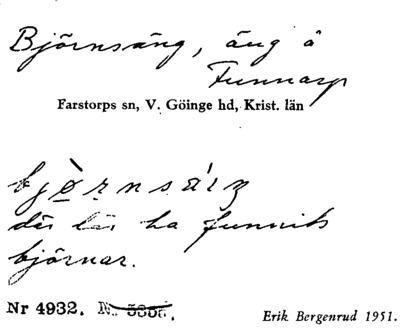 Björnsäng, äng å
Funnarp
Farstorps sn, V. Göinge hd, Krist. län
där lär ha funnits
björnar.
Nr 4932.
Erik Bergenrud 1951.